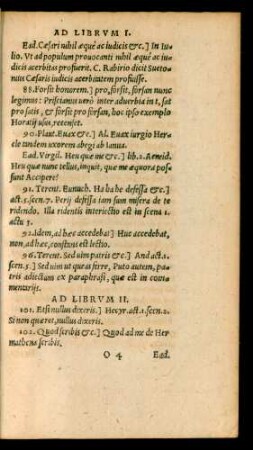 AD LIBRVM I.
Ead. Cæsari nihil æquè ac iudicis &c.] In Iu-
lio. Vt ad populum prouocanti nihil æque ac iu-
dicis acerbitas profuerit. C. Rabirio dicit Sueto-
nius Cæsaris iudicis acerbitatem profuisse.
88. Forsit honorem.] pro, forsit, forsan nunc
legimus: Priscianus verò inter aduerbia in t, sit
pro satis, & forsit pro forsan, hoc ipso exemplo
Horatij usus, retenset.
90. Plaut. Euax &c.] Al. Euax iurgio Her-
cle tandem uxorem abegi ab Ianua.
Ead. Vergil. Heu quæ me &c.] lib. 2. Aeneid.
Heu quæ nunc tellus, inquit, quæ me æquora pos-
sunt Accipere?
91. Terent. Eunuch. Ha ha he defessa &c.]
act. 5. scen. 7. Perij defessa iam sum misera de te
ridendo. Illa ridentis interiectio est in scena 1.
actu 5.
92. Idem, ad hæc accedebat] Huc accedebat,
non, ad hæc, constans est lectio.
96. Terent. Sed uim patris &c.] And act. 1.
scen. 5.] Sed uim ut queas ferre, Puto autem, pa-
tris adiectum ex paraphrasi, quæ est in com-
mentarijs.
AD LIBRVM II.
101. Etsi nullus dixeris.] Hecyr. act. 1. scen. 2.
Si non quæret, nullus dixeris.
102. Quod scribis &c.] Quod ad me de Her-
mathena scribis.
O 4 Ead.